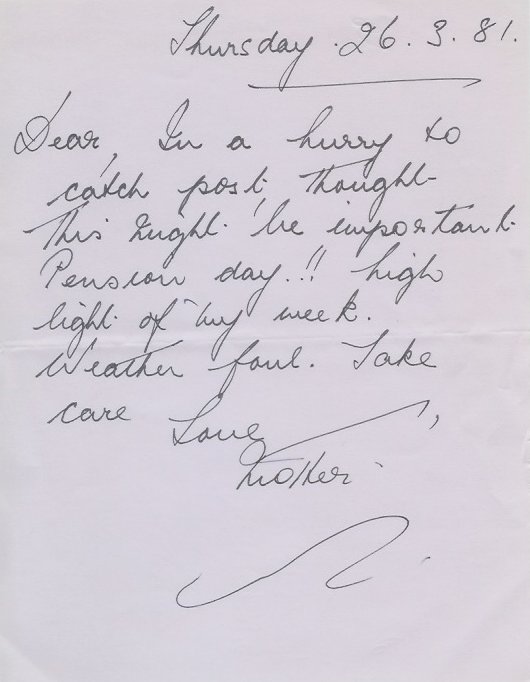 Thursday. 26. 3. 81.
Dear, In a hurry to
catch post, thought
this might be important.
Pension day.!! high
light of my week.
Weather foul. Take
care Love,
Mother